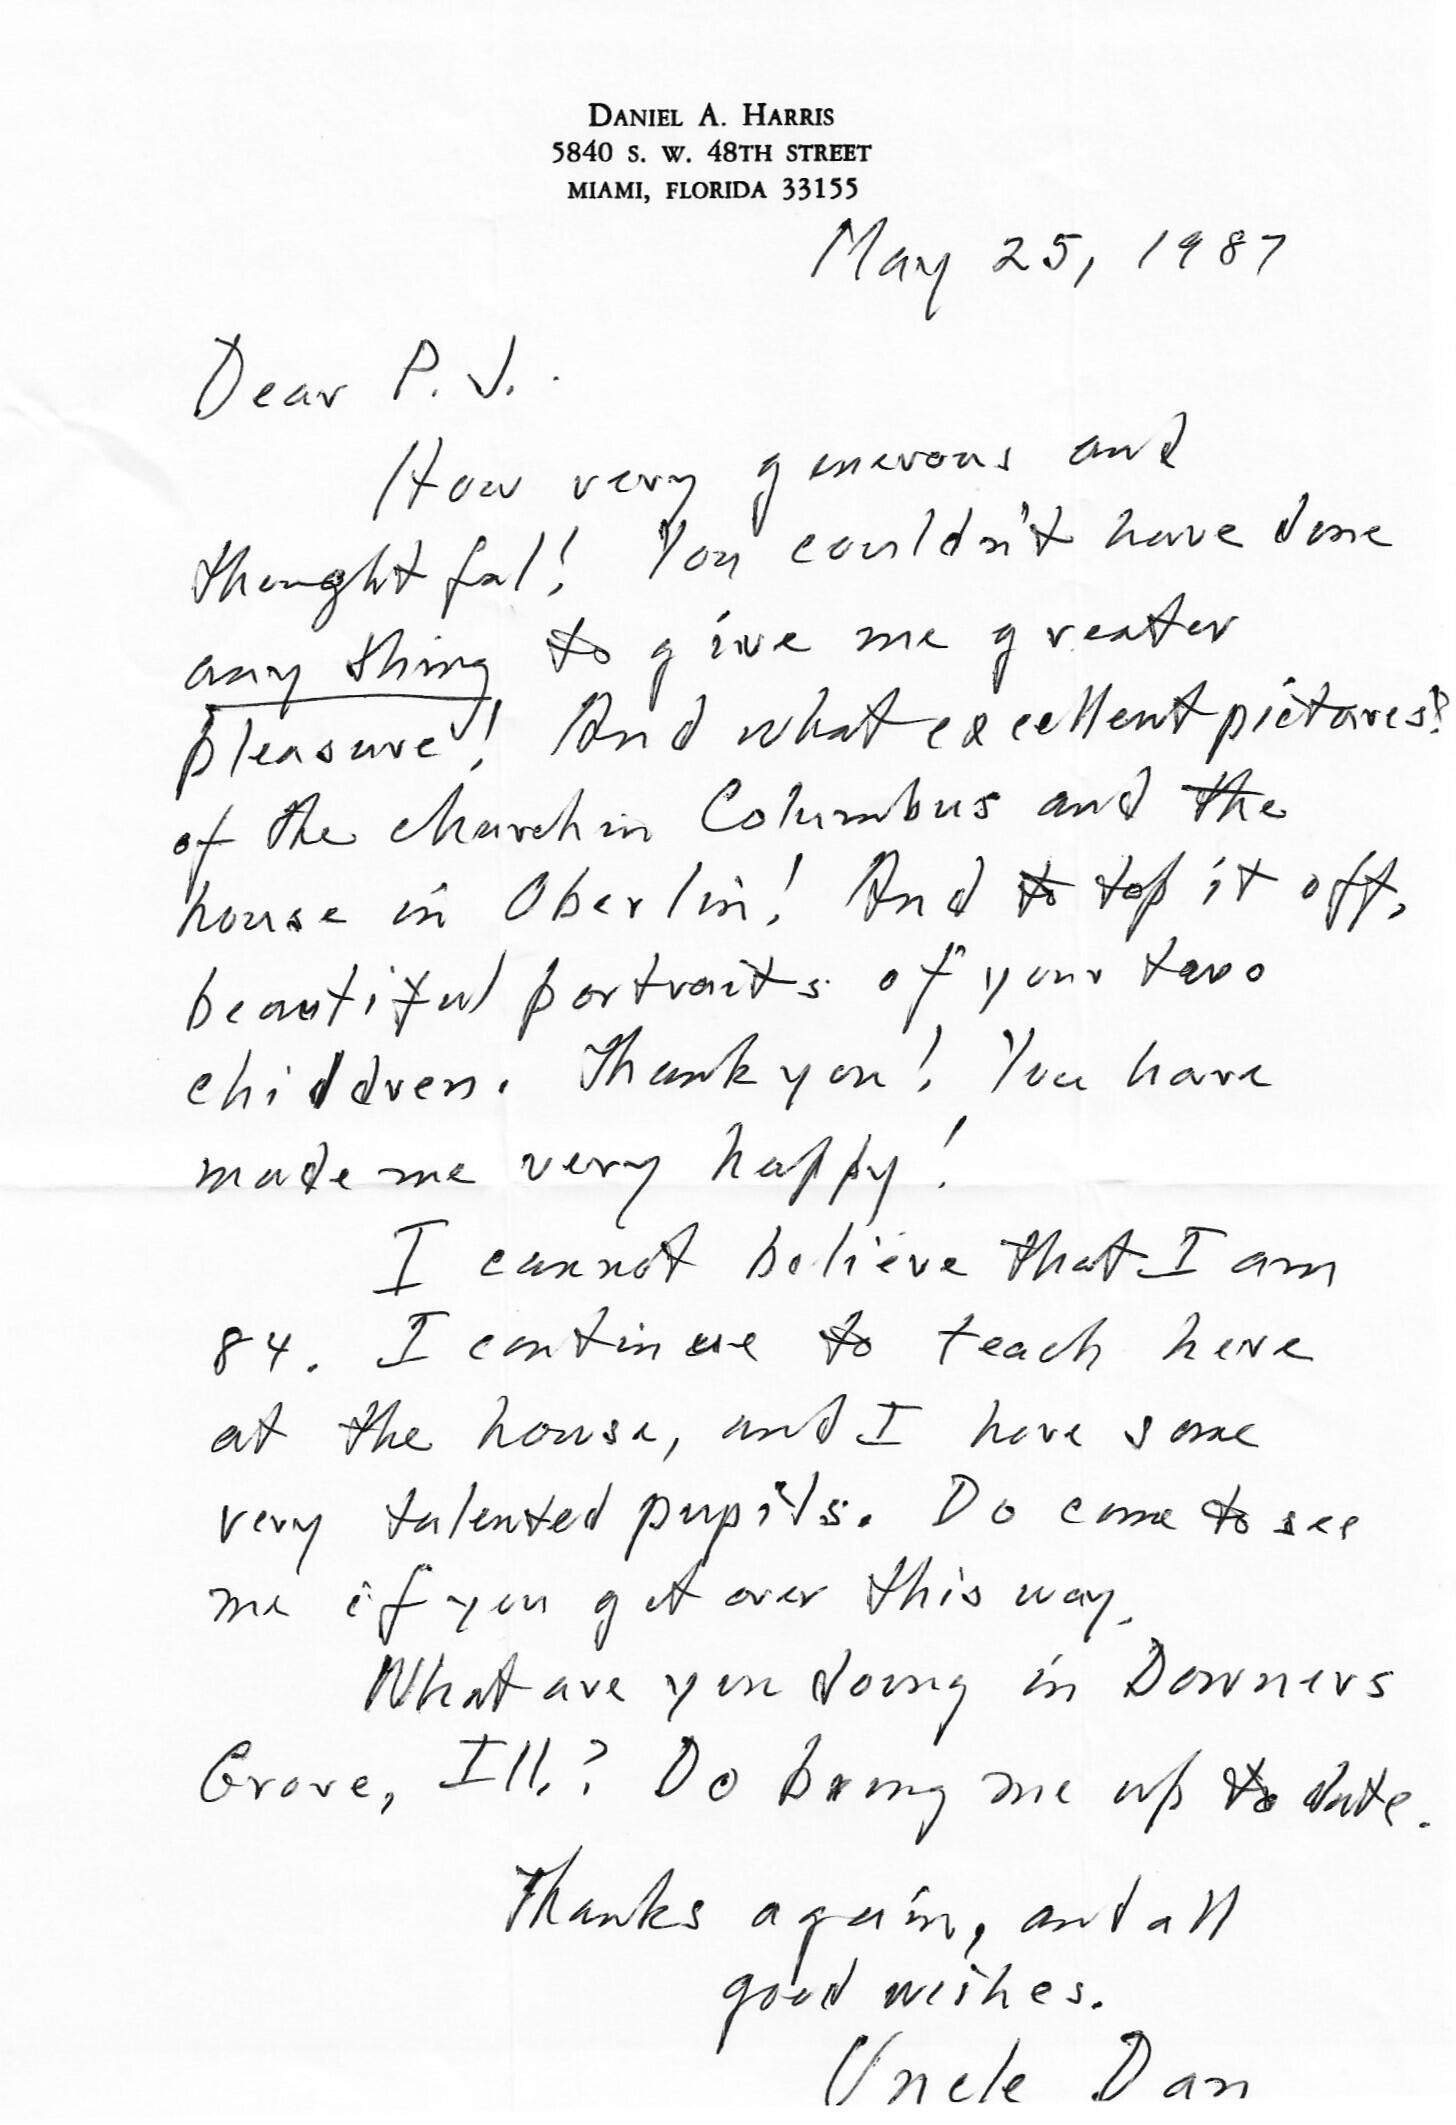 DANIEL A. HARRIS
5840 S. W. 48TH STREET
MIAMI, FLORIDA 33155
May 25, 1987
Dear P. J. .
How very generous and
thoughtful! You couldn't have done
any thing to give me greater
pleasure! And what excellent pictures!
of the church in Columbus and the
house in Oberlin! And to top it off,
beautiful portraits of your two
children. Thank you! You have
made me very happy!
I cannot believe that I am
84. I continue to teach here
at the house, and I have some
very talented pupils. Do come to see
me if you get over this way.
What are you doing in Downers
Grove, Ill.? Do bring me up to date.
Thanks again, and all
good wishes.
Uncle Dan